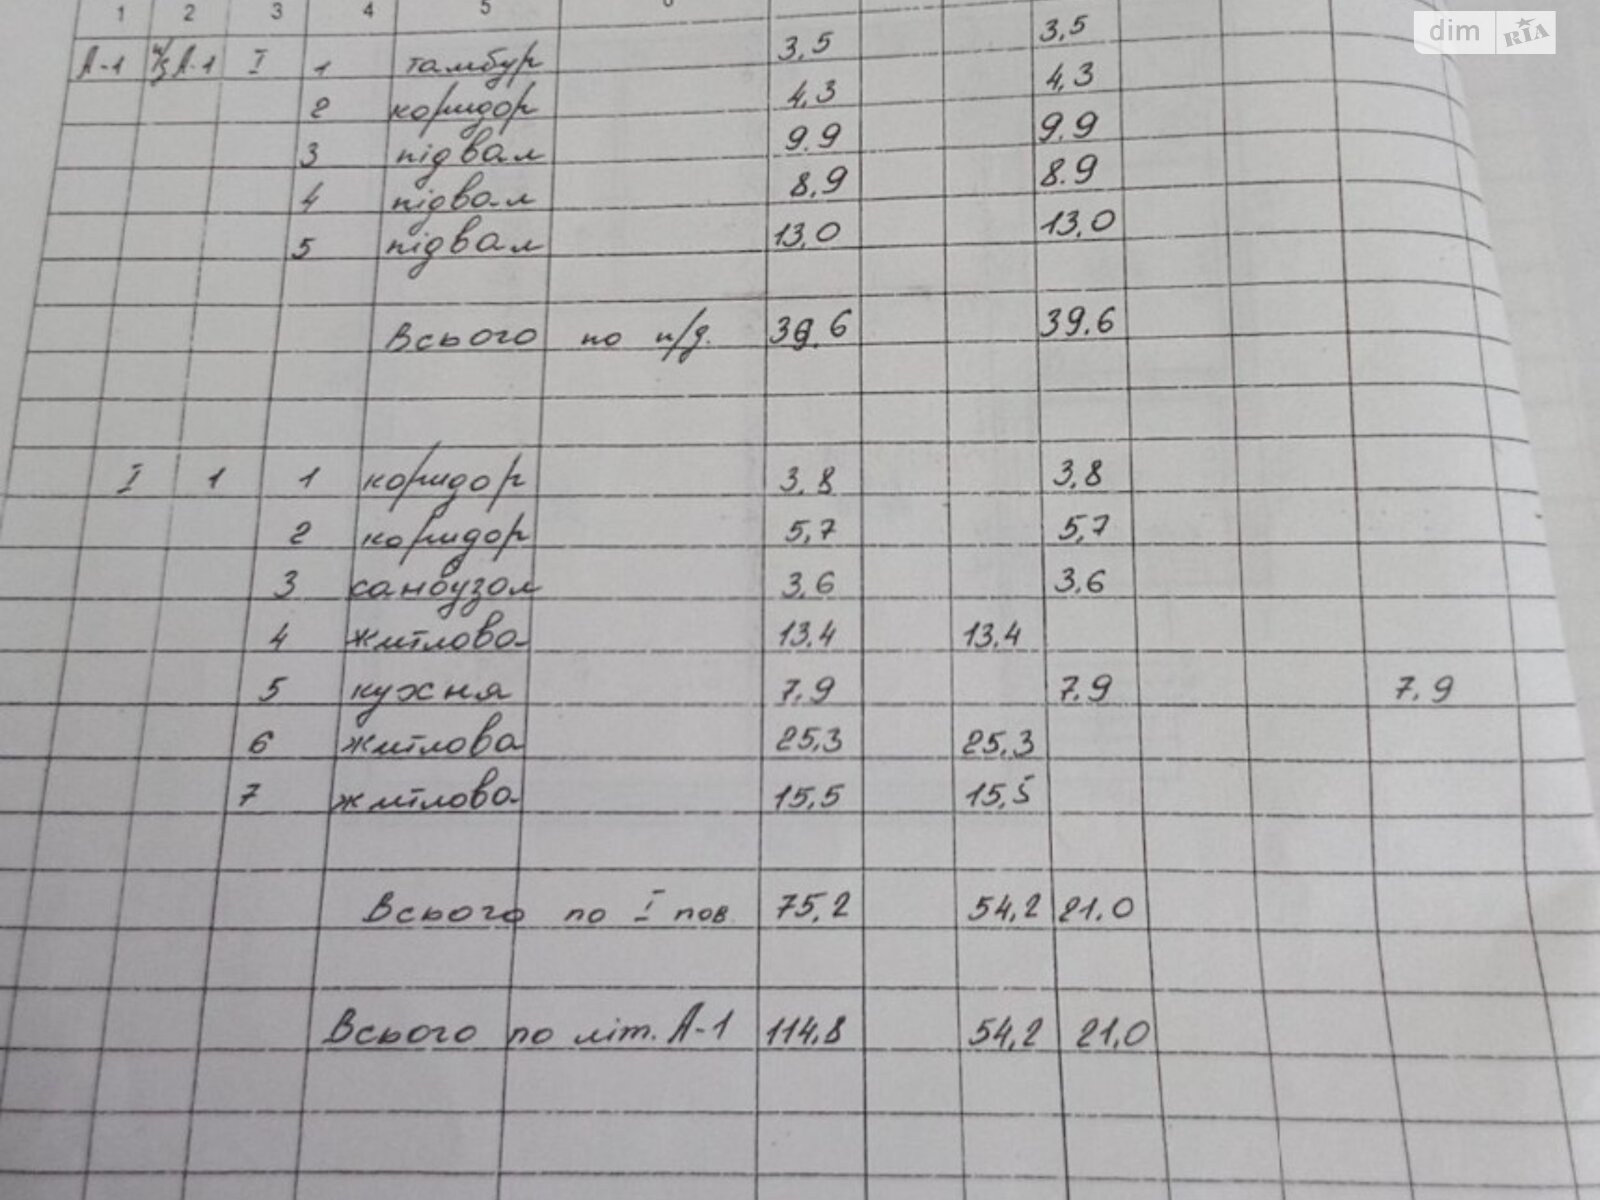 1 2 3 4 5 6
dim RIA
А-1 А-1 I 1 тамбур 3,5 3,5
2 коридор 4,3 4,3
3 підвал 9.9 9.9
4 підвал 8,9 8.9
5 підвал 13,0 13,0
Всього по п/д. 39.6 39.6
I 1 1 коридор 3,8 3,8
2 коридор 5,7 5,7
3 санвузол 3,6 3,6
4 житлова 13,4 13,4
5 кухня 7,9 7,9 7,9
6 житлова 25,3 25,3
7 житлова 15,5 15,5
Всього по I пов. 75,2 54,2 21,0
Всього по літ. А-1 114,8 54,2 21,0